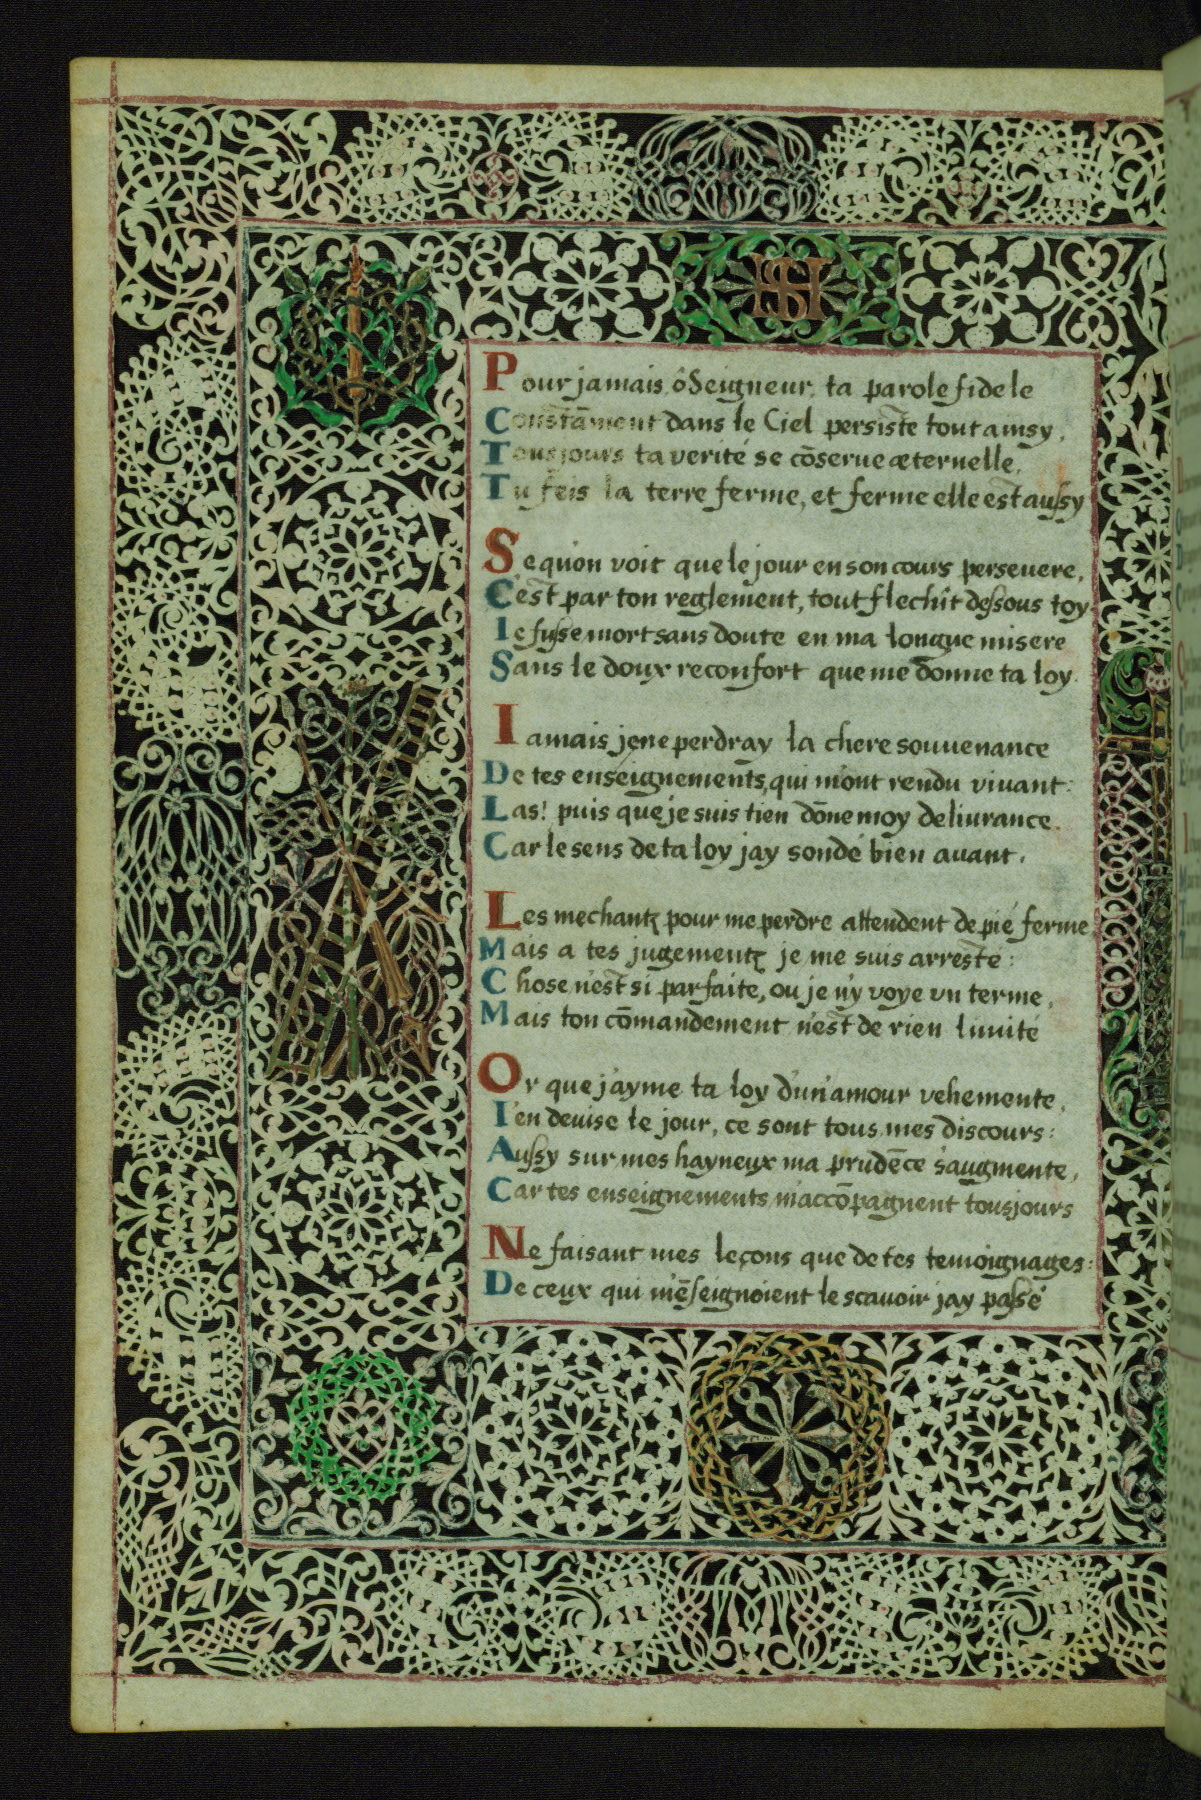 HS
Pour jamais ô Seigneur ta parole fidele
Constãment dans le Ciel persiste tout ainsy,
Tousjours ta verité se cõserue æternelle,
Tu feis la terre ferme, et ferme elle est aussy
Se qu'on voit que le jour en son cours perseuere,
C'est par ton reglement, tout flechit dessous toy
Ie fusse mort sans doute en ma longue misere
Sans le doux reconfort que me donne ta loy.
Iamais je ne perdray la chere souuenance
De tes enseignements, qui m'ont rendu viuant:
Las! puis que je suis tien dõne moy deliurance.
Car le sens de ta loy jay sondé bien auant.
Les mechantz pour me perdre attendent de pié ferme
Mais a tes jugementz je me suis arresté:
Chose n'est si parfaite, ou je n'y voye vn terme,
Mais ton cõmandement n'est de rien limité
Or que j'ayme ta loy d'un'amour vehemente,
I'en deuise le jour, ce sont tous mes discours:
Aussy sur mes hayneux ma prudẽce s'augmente,
Car tes enseignements m'accõpagnent tousjours
Ne faisant mes leçons que de tes temoignages:
De ceux qui m'ẽseignoient le scauoir jay passé